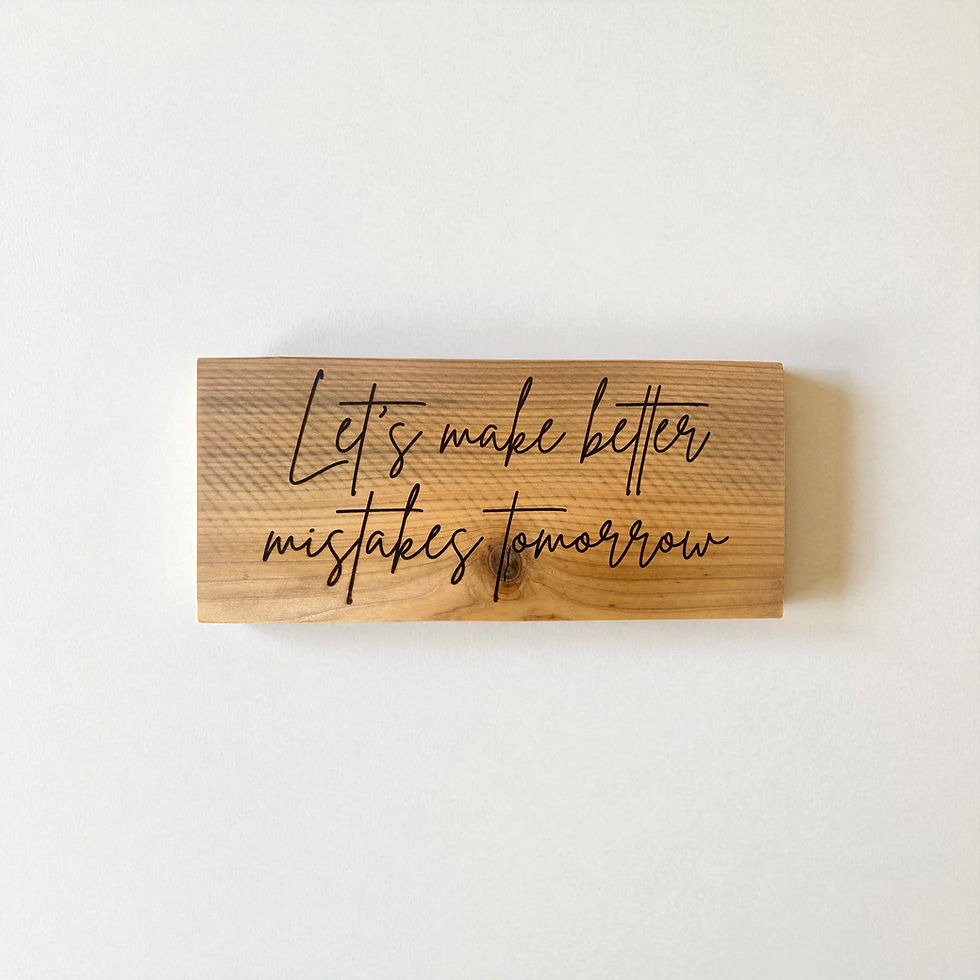 Let's make better
mistakes tomorrow